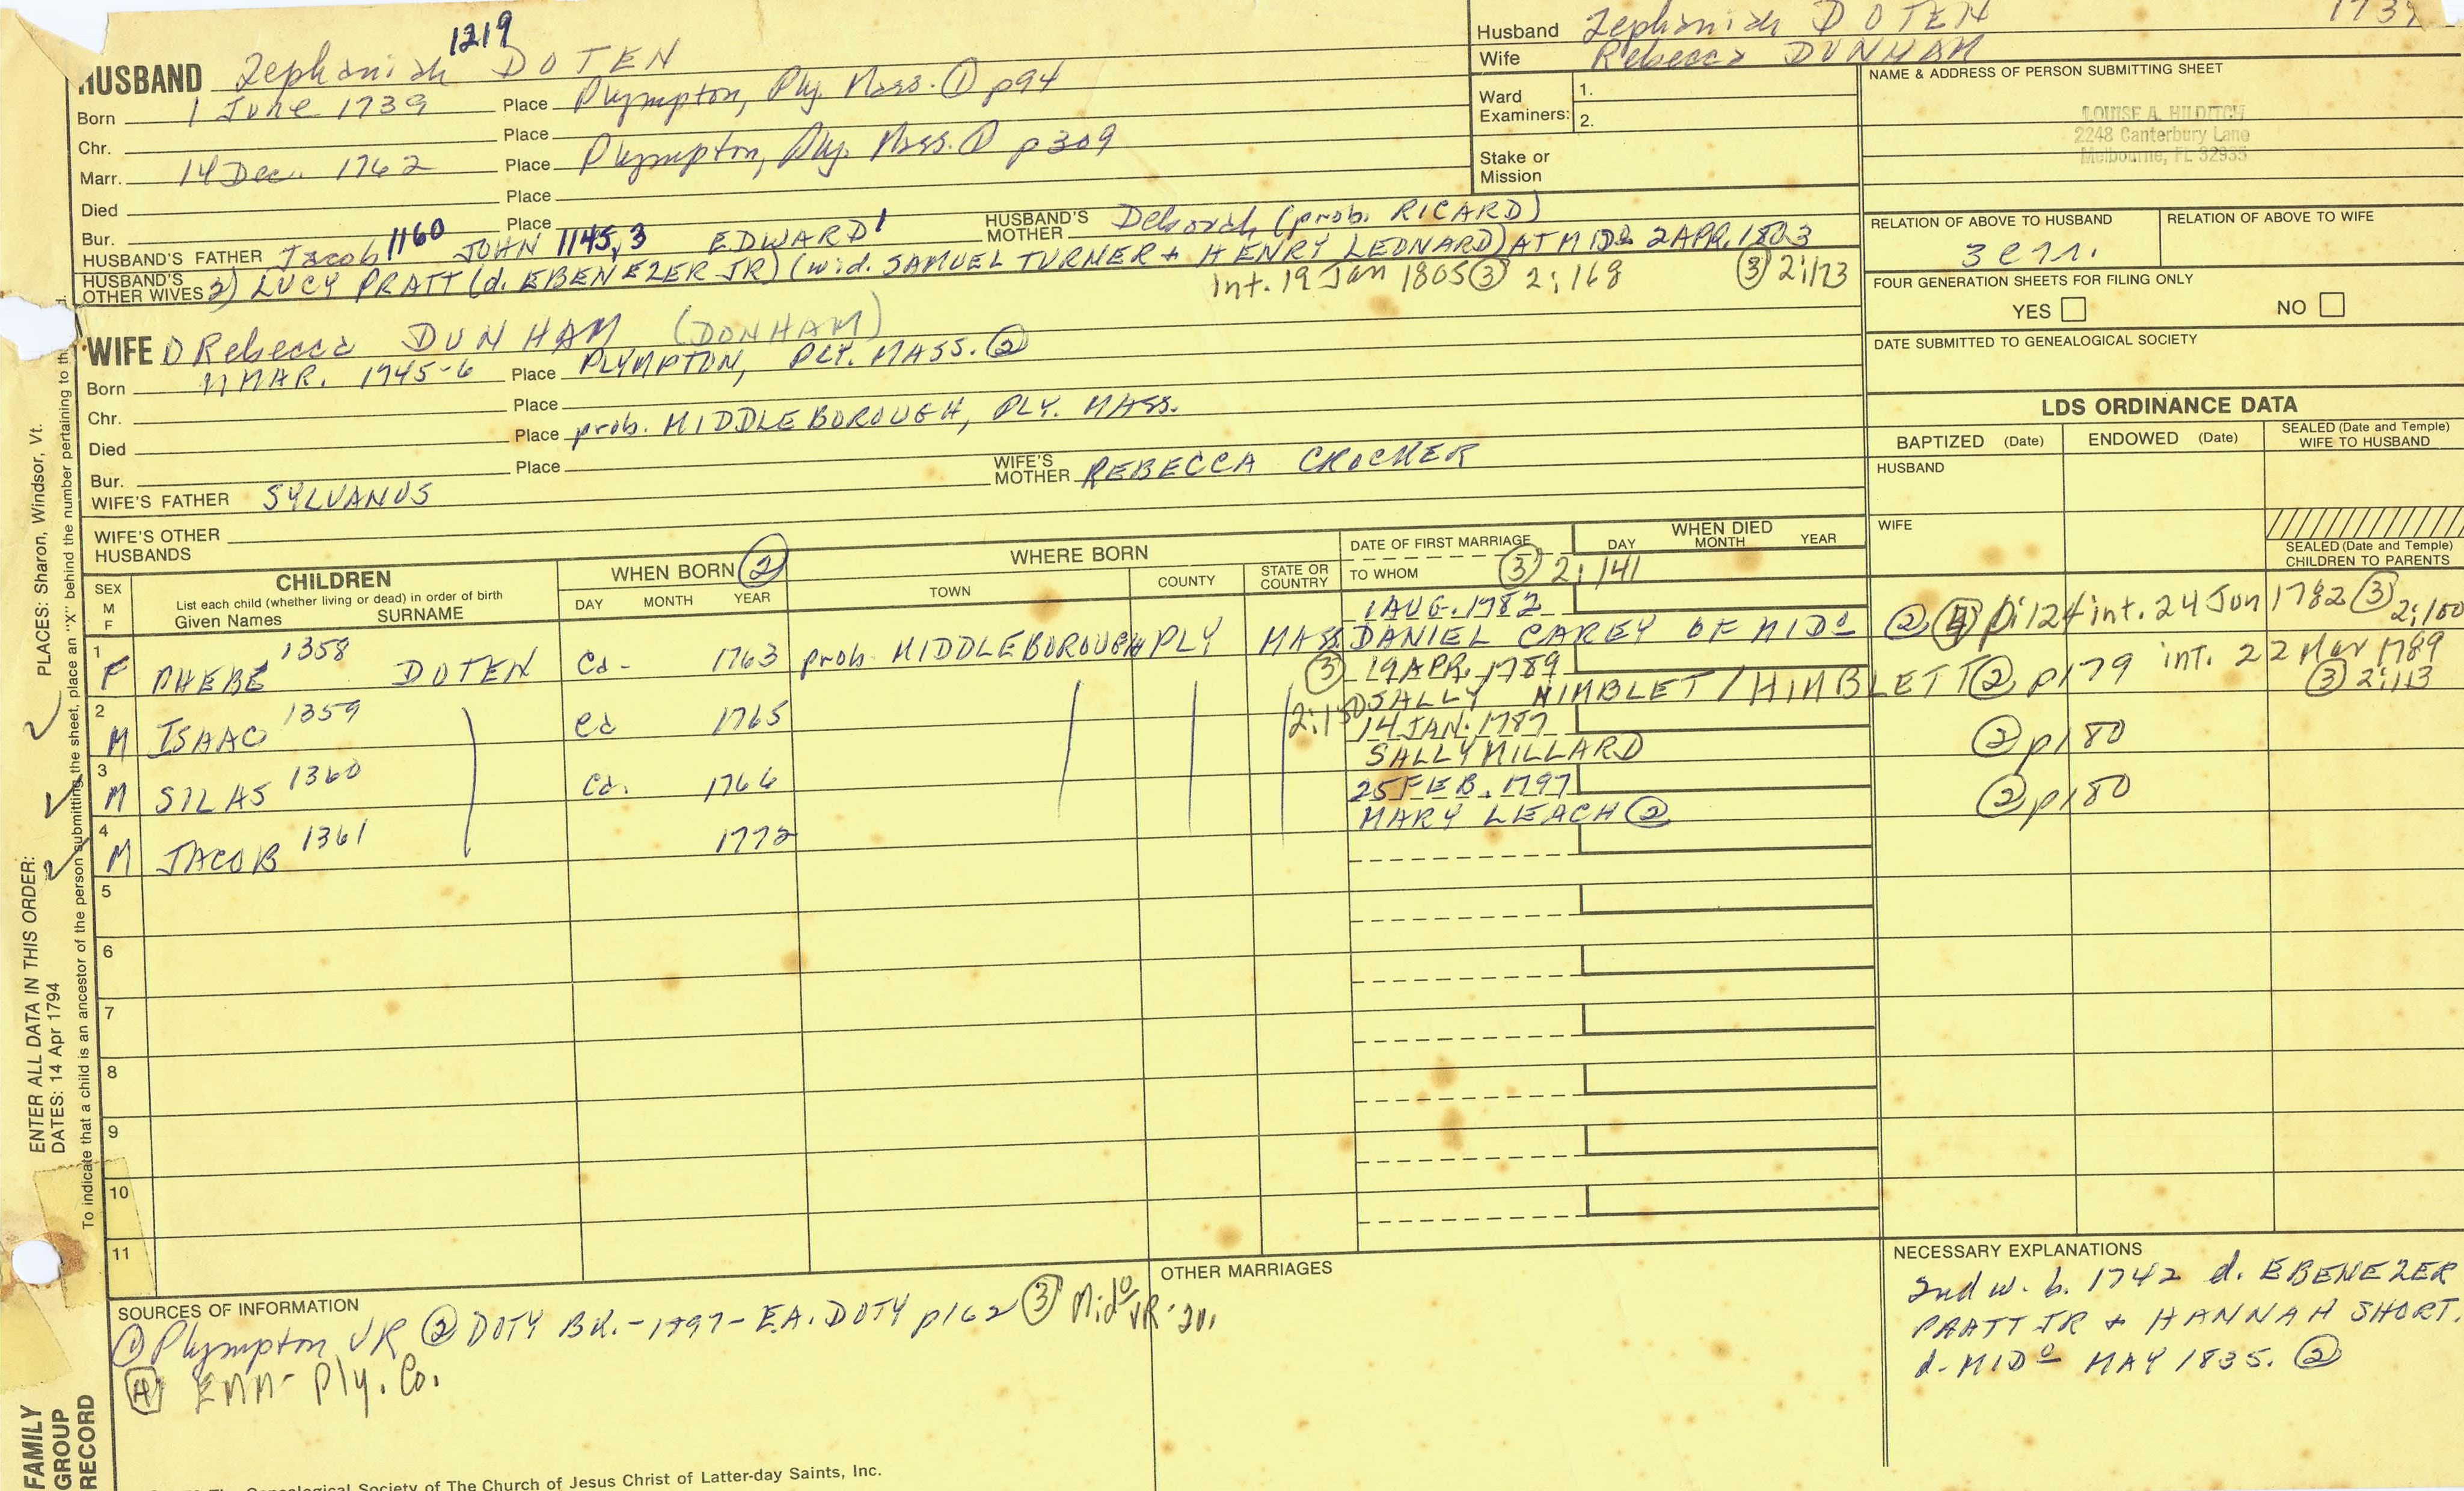 1219
HUSBAND Zephaniah DOTEN
Born 1 June 1739 Place Plympton, Ply. Mass. ① p94
Chr. Place
Marr. 14 Dec. 1762 Place Plympton, Ply. Mass. ① p309
Died Place
Bur. Place
HUSBAND'S FATHER Jacob 1160 JOHN 1145, 3 EDWARD 1 HUSBAND'S MOTHER Deborah (prob. RICARD)
HUSBAND'S OTHER WIVES 2) LUCY PRATT (d. EBENEZER JR) (wid. SAMUEL TURNER + HENRY LEONARD) AT MIDo 2 APR. 1803
Int. 19 Jan 1805 ③ 2:168 ③ 2:173
Husband Zephaniah DOTEN 1739
Wife Rebecca DUNHAM
Ward Examiners: 1.
2.
Stake or Mission
NAME & ADDRESS OF PERSON SUBMITTING SHEET
LOUISE A. HILDITCH
2248 Canterbury Lane
Melbourne, FL 32935
RELATION OF ABOVE TO HUSBAND RELATION OF ABOVE TO WIFE
FOUR GENERATION SHEETS FOR FILING ONLY
YES NO
DATE SUBMITTED TO GENEALOGICAL SOCIETY
WIFE Rebecca DUNHAM (DONHAM)
Born 11 MAR. 1745-6 Place PLYMPTON, PLY. MASS. ②
Chr. Place
Died Place prob. MIDDLEBOROUGH, PLY. MASS.
Bur. Place
WIFE'S FATHER SYLVANUS WIFE'S MOTHER REBECCA CROCKER
WIFE'S OTHER HUSBANDS
LDS ORDINANCE DATA
BAPTIZED (Date) ENDOWED (Date) SEALED (Date and Temple) WIFE TO HUSBAND
HUSBAND
WIFE
SEALED (Date and Temple) CHILDREN TO PARENTS
SEX M F CHILDREN List each child (whether living or dead) in order of birth Given Names SURNAME
WHEN BORN ② DAY MONTH YEAR
WHERE BORN TOWN COUNTY STATE OR COUNTRY
DATE OF FIRST MARRIAGE TO WHOM ③ 2:141
WHEN DIED DAY MONTH YEAR
1 AUG. 1782
1 F PHEBE 1358 DOTEN Ca. 1763 prob. MIDDLEBOROUGH PLY MASS DANIEL CAREY OF MIDo ② 4 p:124 int. 24 Jun 1782 ③ 2:100
③ 19 APR. 1789
2 M ISAAC 1359 ca 1765 2:150 SALLY NIMBLET/HIMBLETT ② p179 int. 22 Mar 1789 ③ 2:113
14 JAN. 1787
3 M SILAS 1360 Ca. 1766 SALLY MILLARD ② p180
25 FEB. 1797
4 M JACOB 1361 1772 MARY LEACH ② ② p180
5
6
7
8
9
10
11
SOURCES OF INFORMATION
① Plympton VR ② DOTY BK. - 1897 - E.A. DOTY p162 ③ Mido VR
4 EMM - Ply. Co.
OTHER MARRIAGES
NECESSARY EXPLANATIONS
2nd w. b. 1742 d. EBENEZER
PRATT JR + HANNAH SHORT.
d. MIDo MAY 1835. ②
Genealogical Society of The Church of Jesus Christ of Latter-day Saints, Inc.
FAMILY GROUP RECORD
ENTER ALL DATA IN THIS ORDER:
DATES: 14 Apr 1794
PLACES: Sharon, Windsor, Vt.
To indicate that a child is an ancestor of the person submitting the sheet, place an "X" behind the number pertaining to